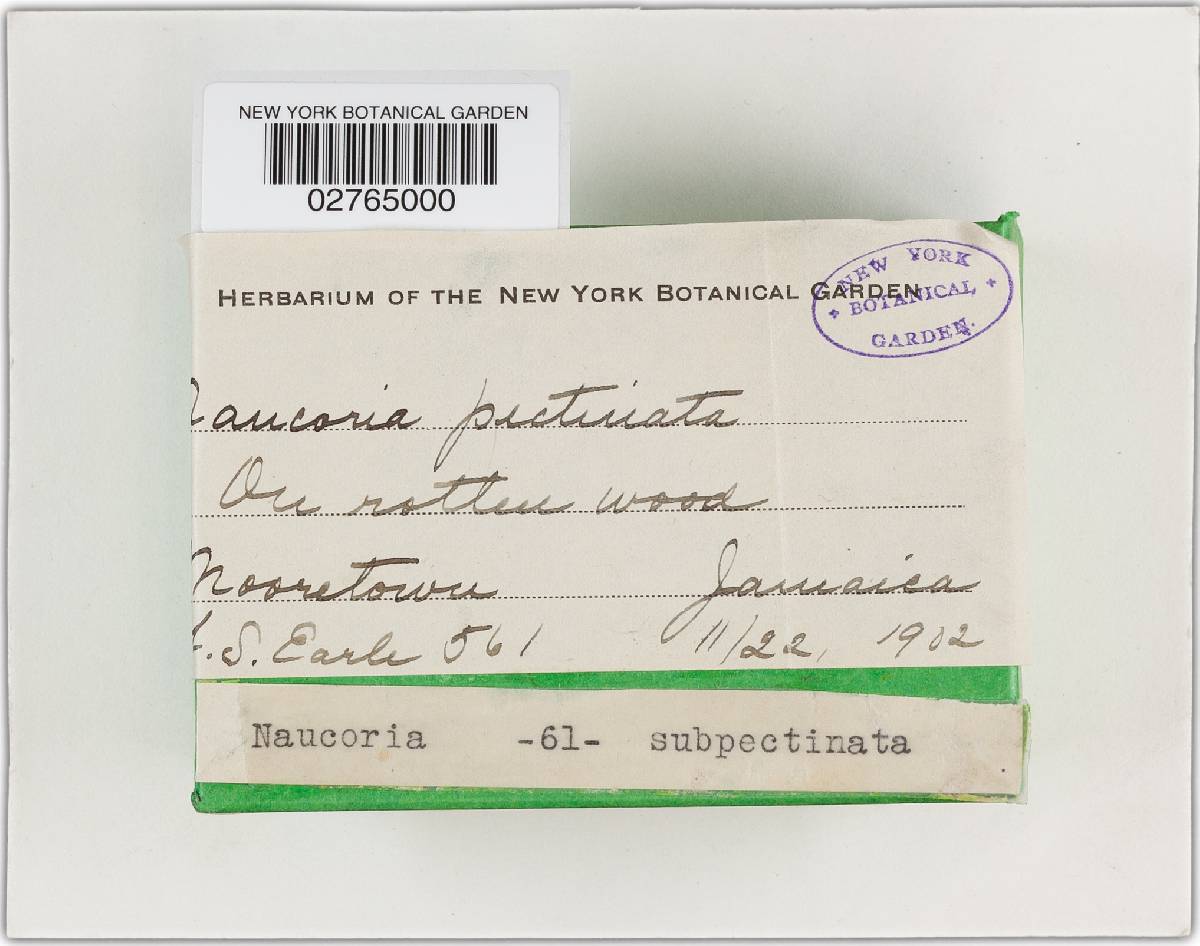 NEW YORK BOTANICAL GARDEN
02765000
HERBARIUM OF THE NEW YORK BOTANICAL GARDEN
NEW YORK
BOTANICAL
GARDEN.
Naucoria pectinata
On rotten wood
Mooretown Jamaica
F.S. Earle 561 11/22, 1902
Naucoria -61- subpectinata